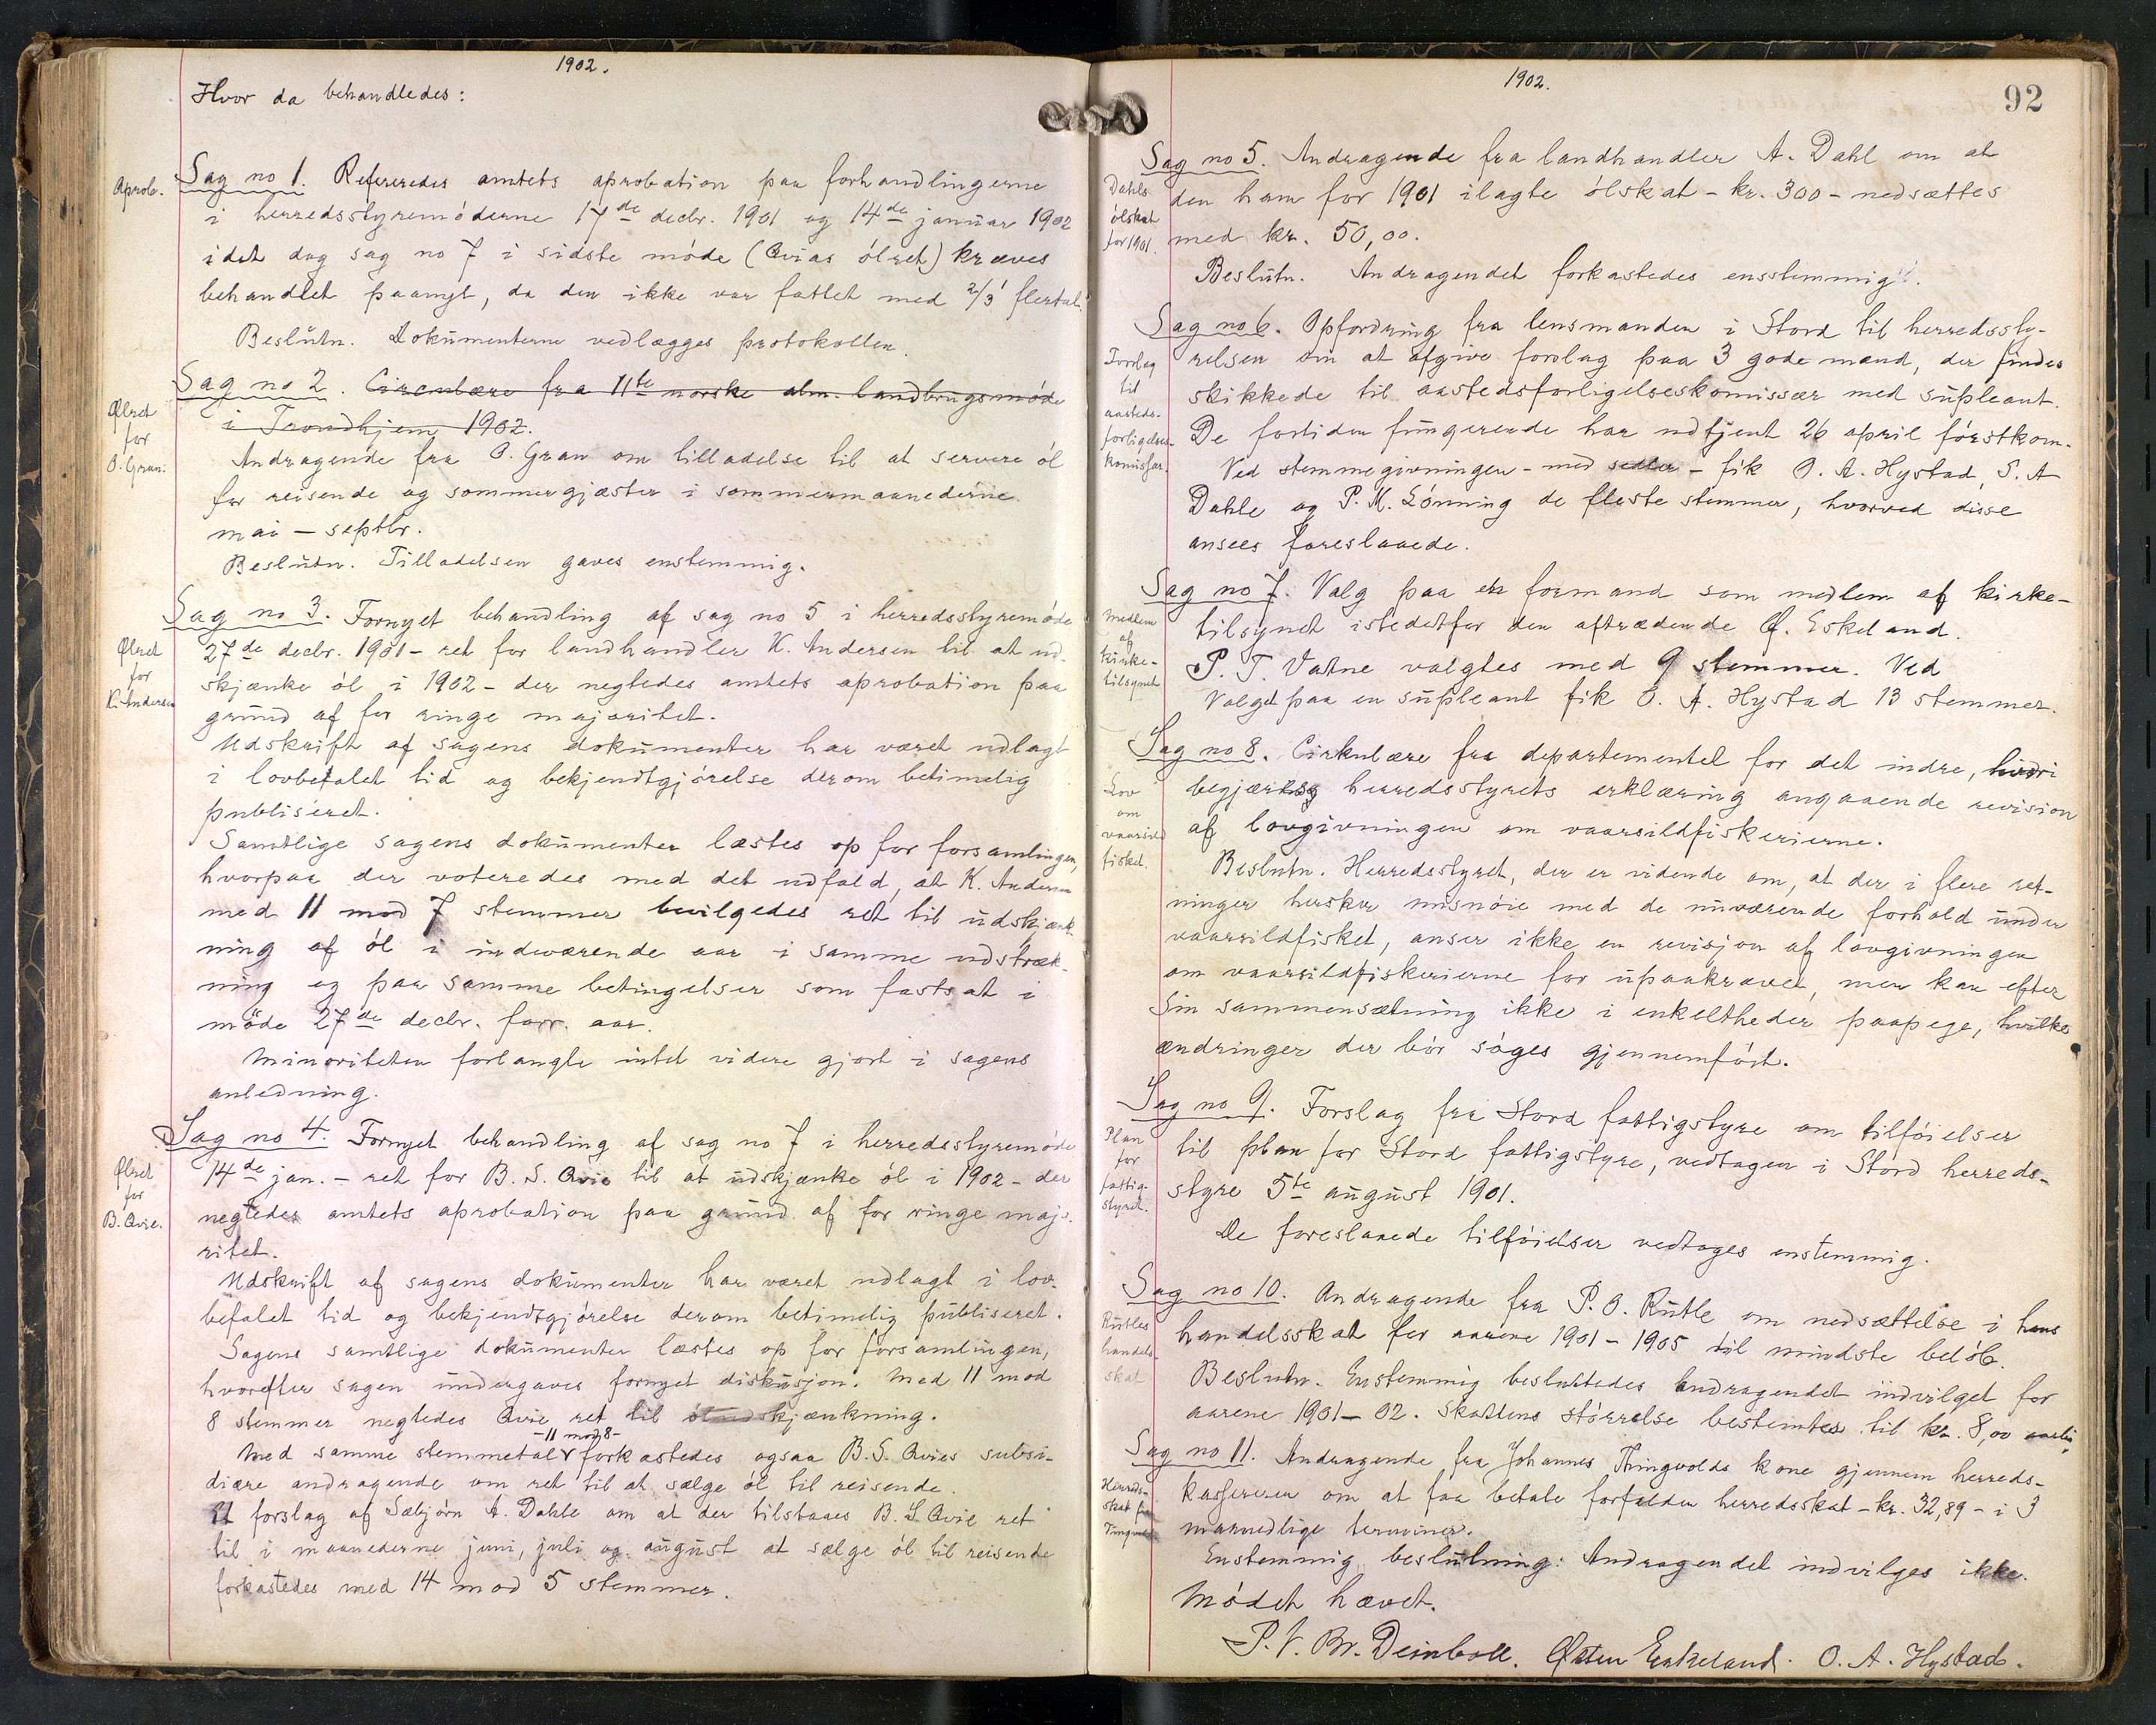 1902.
Hvor da behandledes:
Aprob.
Sag no 1. Refereredes amtets aprobation paa forhandlingerne
i herredsstyremöderne 17de decbr. 1901 og 14de januar 1902
idet dog sag no 7 i sidste möde (Qvies ölret) kræves
behandlet paanyt, da den ikke var fattet med 2/3 flertal.
Beslutn. Dokumenterne vedlægges protokollen.
Sag no 2. Circulære fra 11te norske alm. landbrugsmöde
i Trondhjem 1902.
Ølret
for
O. Gran.
Andragende fra O. Gran om tilladelse til at servere öl
for reisende og sommergjæster i sommermaanederne
mai – septbr.
Beslutn. Tilladelsen gaves enstemmig.
Sag no 3. Fornyet behandling af sag no 5 i herredsstyremöde
Ølret
for
K. Andersen
27de decbr. 1901 – ret for landhandler K. Andersen til at ud-
skjænke öl i 1902 – der negtedes amtets aprobation paa
grund af for ringe majoritet.
Udskrift af sagens dokumenter har været udlagt
i lovbefalet tid og bekjendtgjörelse derom betimelig
publiseret.
Samtlige sagens dokumenter læstes op for forsamlingen,
hvorpaa der voteredes med det udfald, at K. Andersen
med 11 mod 7 stemmer bevilgedes ret til udskjænk-
ning af öl i indeværende aar i samme udstræk-
ning og paa samme betingelser som fastsat i
möde 27de decbr. forr. aar.
Minoriteten forlangte intet videre gjort i sagens
anledning.
Sag no 4. Fornyet behandling af sag no 7 i herredsstyremöde
Ølret
for
B. Qvie.
14de jan. – ret for B. S. Qvie til at udskjænke öl i 1902 – der
negtedes amtets aprobation paa grund af for ringe majo-
ritet.
Udskrift af sagens dokumenter har været udlagt i lov-
befalet tid og bekjendtgjörelse derom betimelig publiseret.
Sagens samtlige dokumenter læstes op for forsamlingen,
hvorefter sagen undergaves fornyet diskusjon. Med 11 mod
8 stemmer negtedes Qvie ret til ölskjænkning.
-11 mod 8-
Med samme stemmetal forkastedes ogsaa B. S. Qvies subsi-
diære andragende om ret til at sælge öl til reisende.
Et forslag af Sæbjörn A. Dahle om at der tilstaaes B. S. Qvie ret
til i maanederne juni, juli og august at sælge öl til reisende
forkastedes med 14 mod 5 stemmer.
1902.
92
Sag no 5. Andragende fra landhandler A. Dahl om at
Dahls
ölskat
for 1901.
den ham for 1901 ilagte ölskat – kr. 300 – nedsættes
med kr. 50,00.
Beslutn. Andragendet forkastedes ensstemmig.
Sag no 6. Opfordring fra lensmanden i Stord til herredssty-
Forslag
til
aasteds-
forligelses-
komissær.
relsen om at afgive forslag paa 3 gode mænd, der findes
skikkede til aastedsforligelseskomissær med supleant.
De fortiden fungerende har udtjent 26 april förstkom.
Ved stemmegivningen – med sedler – fik O. A. Hystad, S. A
Dahle og P. M. Lönning de fleste stemmer, hvorved disse
ansees foreslaaede.
Sag no 7. Valg paa en formand som medlem af kirke-
Medlem
af
kirke-
tilsynet
tilsynet istedetfor den aftrædende Ø. Eskeland.
P. T. Vatne valgtes med 9 stemmer. Ved
Valget paa en supleant fik O. A. Hystad 13 stemmer.
Sag no 8. Cirkulære fra departementet for det indre, hvori
Lov
om
vaarsild
fisket.
begjæres herredsstyrets erklæring angaaende revision
af lovgivningen om vaarsildfiskerierne.
Beslutn. Herredsstyret, der er vidende om, at der i flere ret-
ninger hersker misnöie med de nuværende forhold under
vaarsildfisket, anser ikke en revisjon af lovgivningen
om vaarsildfiskerierne for upaakrævet, men kan efter
sin sammensætning ikke i enkeltheder paapege, hvilke
ændringer der bör söges gjennemfört.
Sag no 9. Forslag fra Stord fattigstyre om tilföielser
Plan
for
fattig-
styret.
til plan for Stord fattigstyre, vedtagen i Stord herreds-
styre 5te august 1901.
De foreslaaede tilföielser vedtoges enstemmig.
Sag no 10. Andragende fra P. O. Rutle om nedsættelse i hans
Rutles
handels-
skat
handelsskat for aarene 1901 – 1905 til mindste belöb.
Beslutn. Enstemmig besluttedes andragendet indvilget for
aarene 1901 – 02. Skattens störrelse bestemtes til kr. 8,00 aarlig.
Sag no 11. Andragende fra Johannes Tingvolds kone gjennem herreds-
Herreds-
skat for
Tingvold
kassereren om at faa betale forfalden herredsskat – kr. 32,89 – i 3
maanedlige terminer.
Enstemmig beslutning: Andragendet indvilges ikke.
Mödet hævet.
P. V. Br. Deinboll. Østen Eskeland. O. A. Hystad.